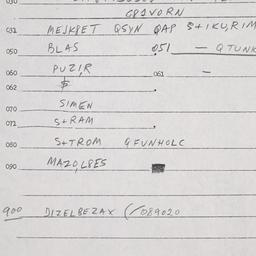 030
GPIVORN
031 MEJKPET QSYN QAP S+IKURIM
050 BLAS 051 — QTUNK
060 PUZIR 061 —
062 $
070 SIMEN
071 S+RAM
080 S+TROM QFUNHOLC
090 MAZO,LPES
900 DIZELBEZAX (/089020